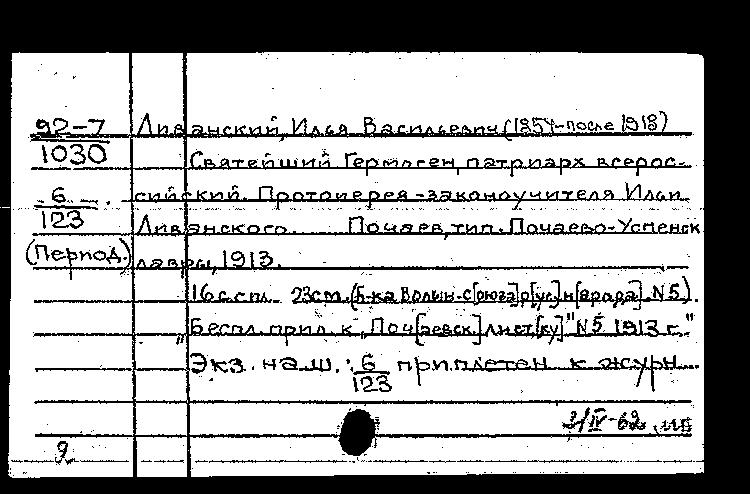 92-7 Ливанский, Илья Васильевич (1854-после 1918)
1030 Святейший Гермоген, патриарх всерос-
6 сийский. Протоиерея-законоучителя Ильи
123 Ливанского. Почаев, тип. Почаево-Успенск
(Период.) лавры, 1913.
16 с. спл. 23см. (Б-ка Волын. С[оюза] р[ус.] н[арода] N5).
"Беспл. прил. к „Поч[аевск.] лист[ку]" N5 1913 г."
Экз. наш.: 6 приплетен к журн.
123
IV-62
9